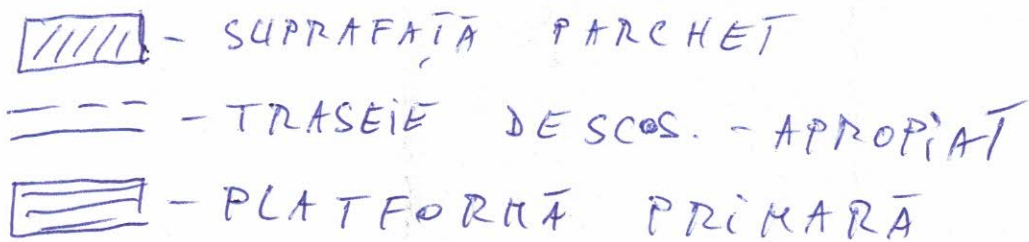 - SUPRAFAȚĂ PARCHET
- TRASEIE DESCOS. - APROPIAT
- PLATFORMĂ PRIMARĂ